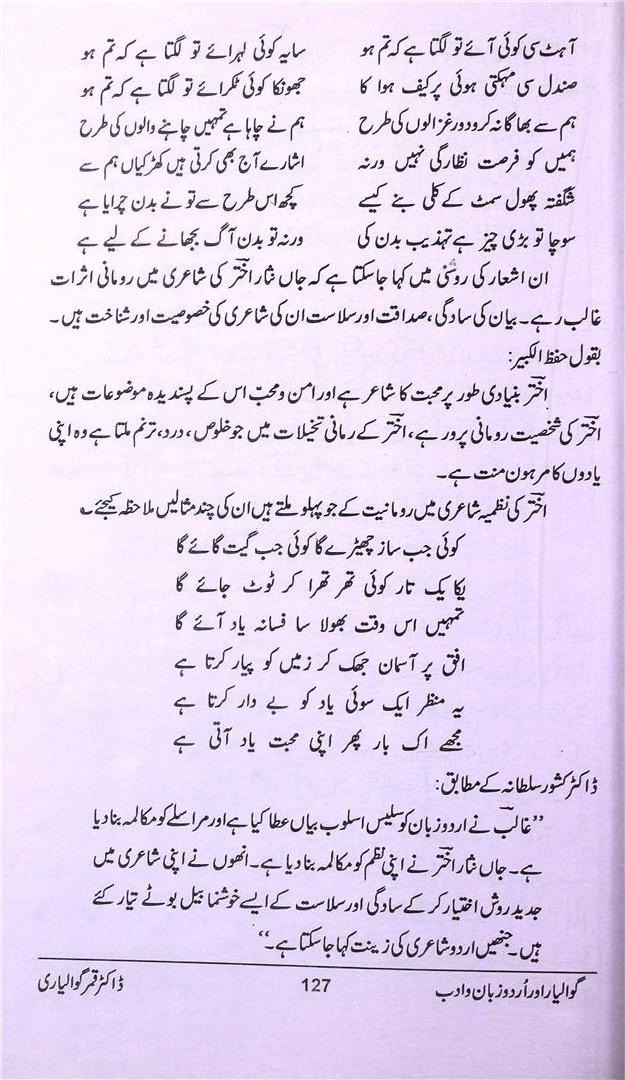 آہٹ سی کوئی آئے تو لگتا ہے کہ تم ہو سایہ کوئی لہرائے تو لگتا ہے کہ تم ہو
صندل سی مہکتی ہوئی پر کیف ہوا کا جھونکا کوئی ٹکرائے تو لگتا ہے کہ تم ہو
ہم سے بھاگا نہ کرو دور غزالوں کی طرح ہم نے چاہا ہے تمہیں چاہنے والوں کی طرح
ہمیں کو فرصت نظارگی نہیں ورنہ اشارے آج بھی کرتی ہیں کھڑکیاں ہم سے
شگفتہ پھول سمٹ کے کلی بنے کیسے کچھ اس طرح سے تو نے بدن چرایا ہے
سوچا تو بڑی چیز ہے تہذیب بدن کی ورنہ تو بدن آگ بجھانے کے لیے ہے
ان اشعار کی روشنی میں کہا جاسکتا ہے کہ جاں نثار اختر کی شاعری میں رومانی اثرات
غالب رہے۔ بیان کی سادگی، صداقت اور سلاست ان کی شاعری کی خصوصیت اور شناخت ہیں۔
بقول حفظ الکبیر:
اختر بنیادی طور پر محبت کا شاعر ہے اور امن و محبّ اس کے پسندیدہ موضوعات ہیں،
اختر کی شخصیت رومانی پرور ہے، اختر کے رمانی تخیلات میں جو خلوص، درد، ترنم ملتا ہے وہ اپنی
یادوں کا مرہون منت ہے۔
اختر کی نظمیہ شاعری میں رومانیت کے جو پہلو ملتے ہیں ان کی چند مثالیں ملاحظہ کیجئے ؎
کوئی جب ساز چھیڑے گا کوئی جب گیت گائے گا
یکا یک تار کوئی تھر تھرا کر ٹوٹ جائے گا
تمہیں اس وقت بھولا سا فسانہ یاد آئے گا
افق پر آسماں جھک کر زمیں کو پیار کرتا ہے
یہ منظر ایک سوئی یاد کو بے دار کرتا ہے
مجھے اک بار پھر اپنی محبت یاد آتی ہے
ڈاکٹر کشور سلطانہ کے مطابق:
”غالب نے اردو زبان کو سلیس اسلوب بیاں عطا کیا ہے اور مراسلے کو مکالمہ بنا دیا
ہے۔ جاں نثار اختر نے اپنی نظم کو مکالمہ بنا دیا ہے۔ انھوں نے اپنی شاعری میں
جدید روش اختیار کر کے سادگی اور سلاست کے ایسے خوشنما بیل بوٹے تیار کئے
ہیں۔ جنھیں اردو شاعری کی زینت کہا جاسکتا ہے۔“
گوالیار اور اُردو زبان و ادب 127 ڈاکٹر قمر گوالیاری